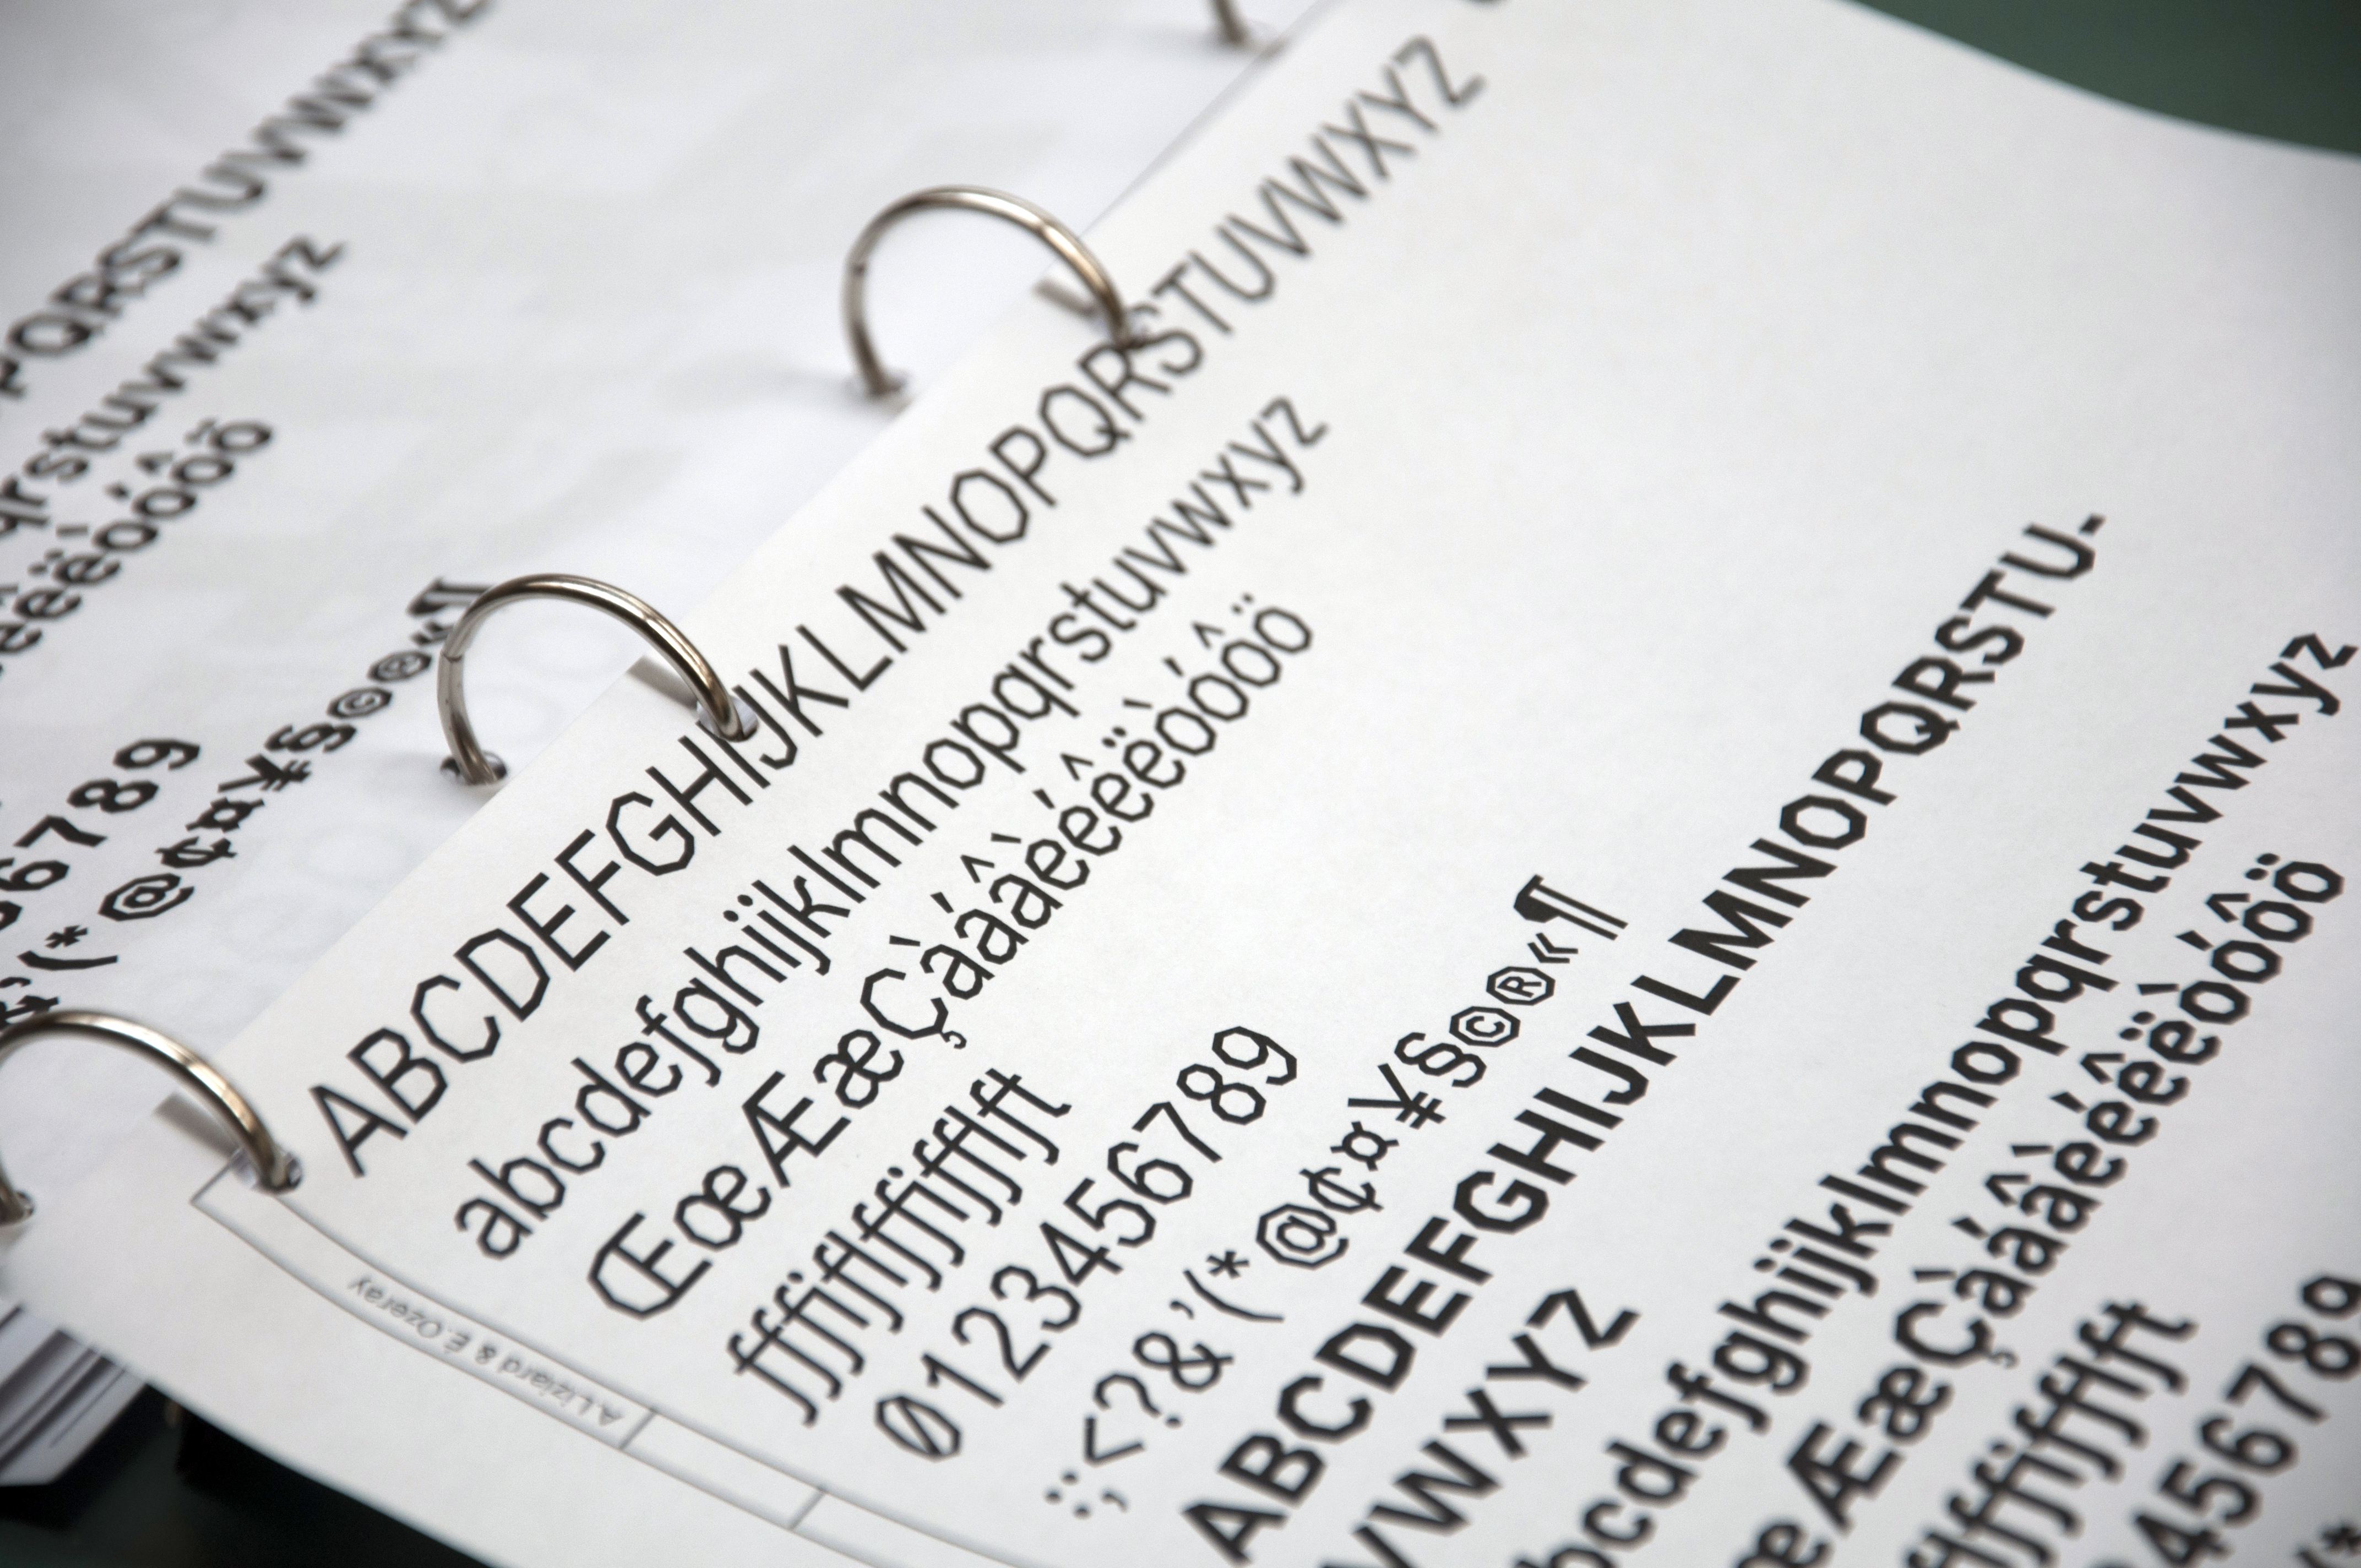 PQRSTUVWXYZ
qrstuvwxyz
êëòóôö
6789
&'(*@¢¤¥§©®«¶
ABCDEFGHIJKLMNOPQRSTUVWXYZ
abcdefghijklmnopqrstuvwxyz
ŒœÆæÇàáâèéêëòóôö
0123456789
:;<?&'(*@¢¤¥§©®«¶
ABCDEFGHIJKLMNOPQRSTU-
VWXYZ
bcdefghijklmnopqrstuvwxyz
œÆæÇàáâèéêëòóôö
456789
A.Liziard & É. Ozeray